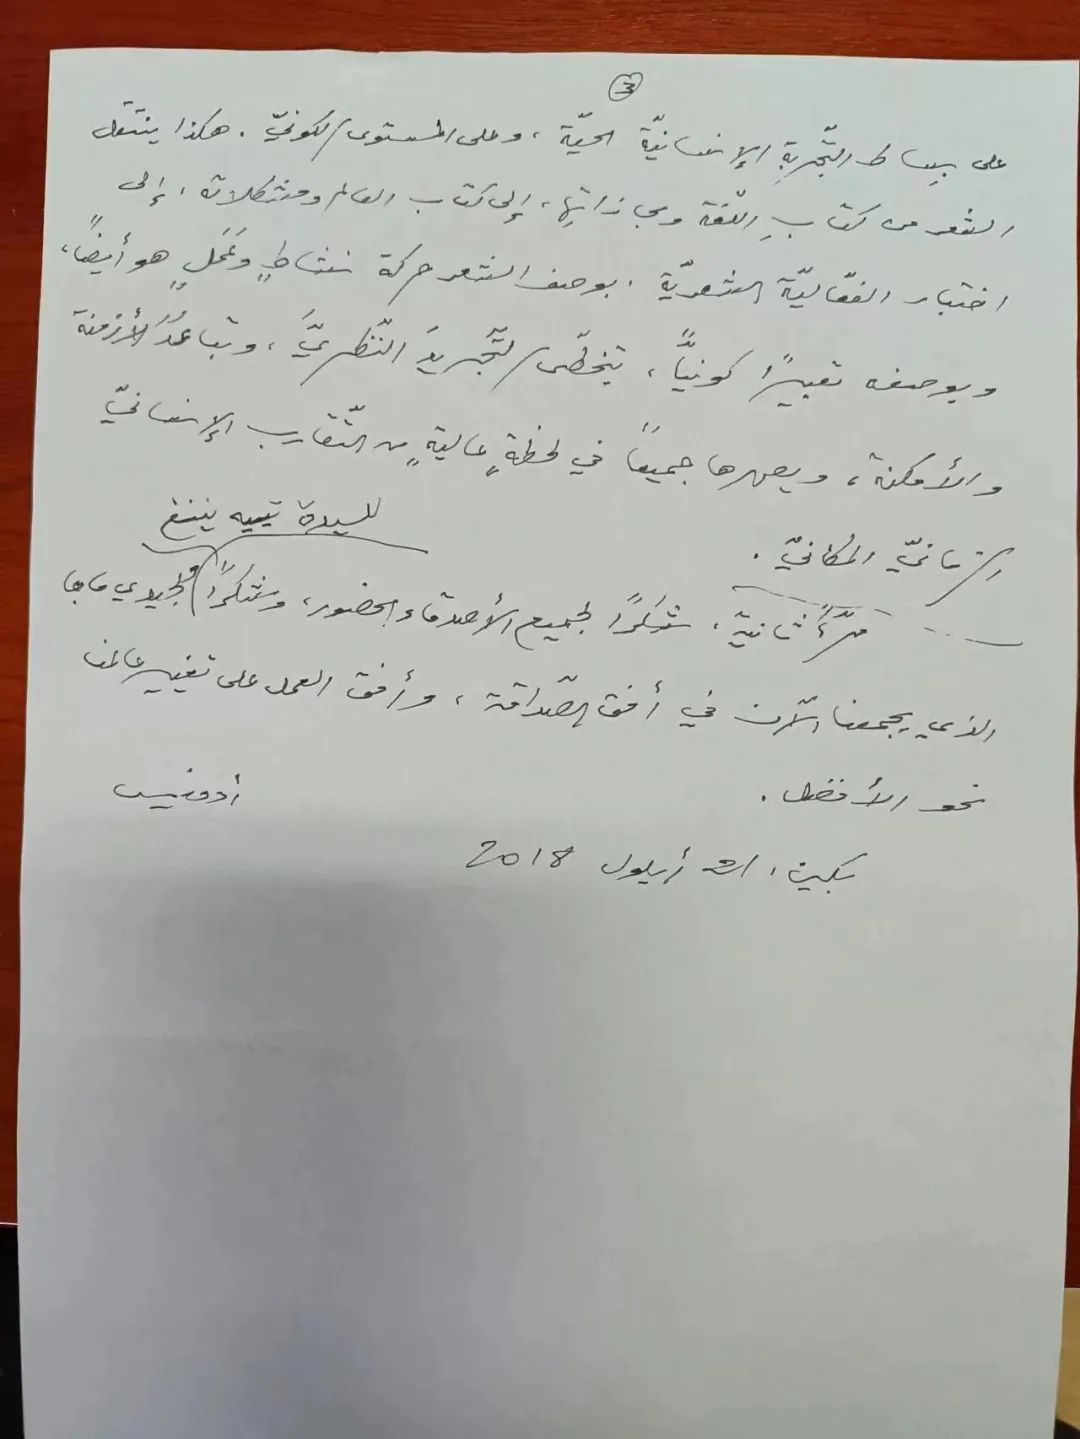 3
على بِساط التّجربةِ الإنسانيّة الحيّة، وعلى المستوى الكونيّ. هكذا ينتقل
الشعر من كتابِ اللّغة ومجازاتِها، إلى كتاب العالم ومشكلاته، إلى
اختبار الفعّاليّة الشعريّة، بوصف الشعر حركة نشاطٍ وعَمَلٍ هو أيضًا،
وبوصفه تعبيرًا كونيًّا، يتخطّى التّجريدَ النّظريَّ، وتباعُدَ الأزمنة
والأمكنة، ويصهرها جميعًا في لحظةٍ عاليةٍ من التّقارب الإنسانيّ
الزمانيّ المكانيّ.
للسيدة تييه ييننغ
مرّةً ثانيةً، شكرًا لجميع الأصدقاء الحضور، وشكرًا لجيدي ماجا
الذي يجمعنا الآن في أفق الصّداقة، وأفق العمل على تغيير عالمنا
نحو الأفضل.
أدونيس
بكين، أيلول 2018